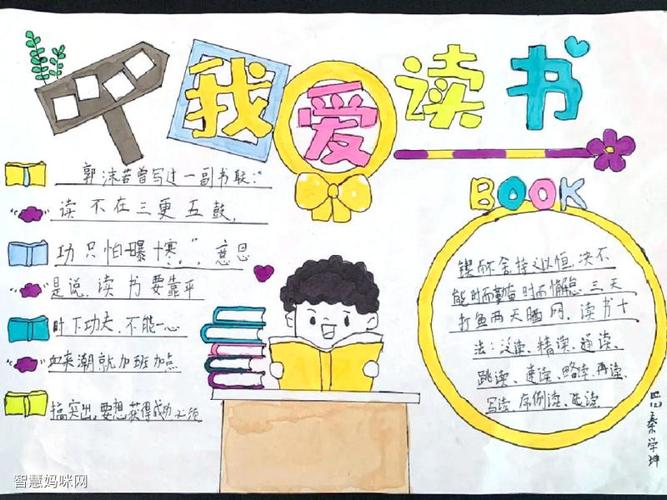 我爱读书
郭沫若曾写过一副书联:“
读不在三更五鼓,
功只怕一曝十寒。”意思
是说,读书要靠平
时下功夫,不能一心
血来潮就加班加点
搞突出,要想获得成功必须
BOOK
锲而不舍持之以恒,决不
能时而勤奋时而惰怠 三天
打鱼两天晒网,读书十
法:泛读、精读、通读、
跳读、速读、略读、再读、
写读、序例读、选读
秦学坤
智慧妈咪网